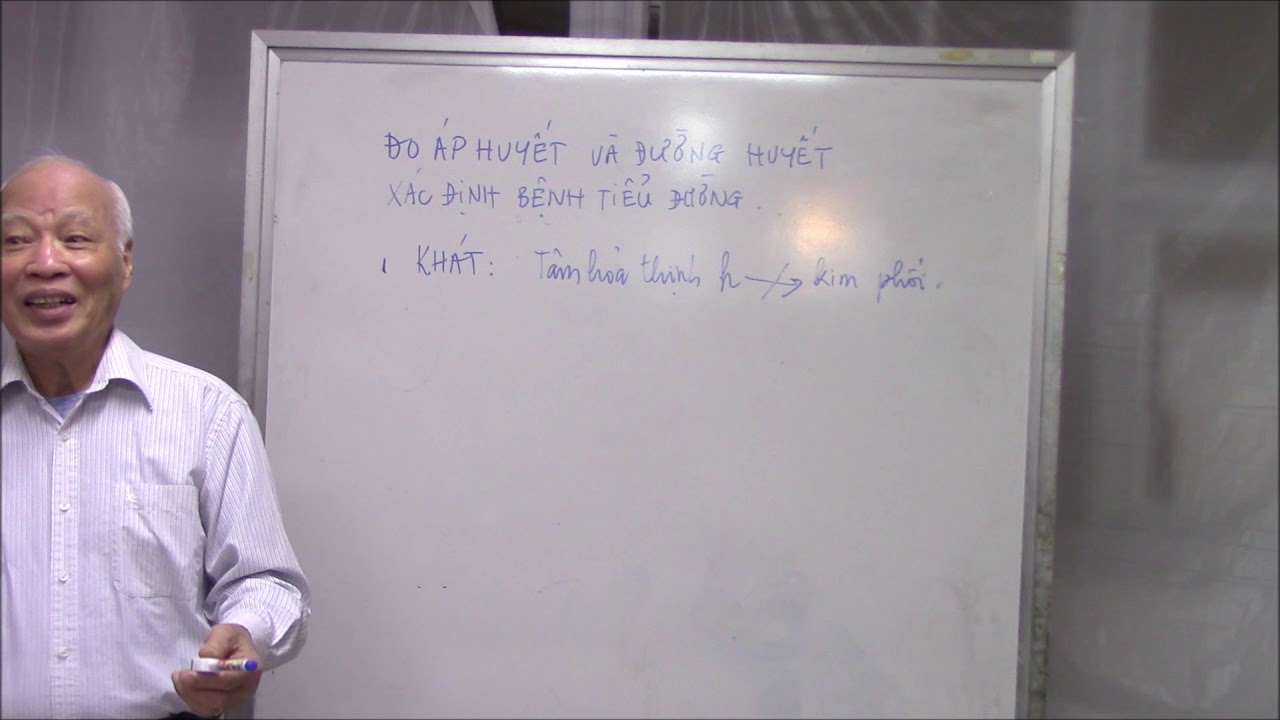 ĐO ÁP HUYẾT VÀ ĐƯỜNG HUYẾT
XÁC ĐỊNH BỆNH TIỂU ĐƯỜNG.
1 KHÁT: Tâm hỏa thịnh k → kim phổi.